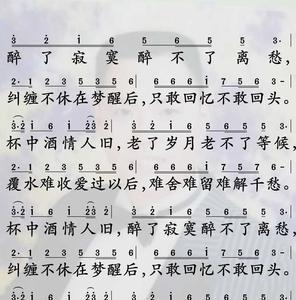 3 2 i 6 5 6 5 5 3·
醉了寂寞醉不了离愁,
2·1 2 3 5 3 5 6 6 6 6 i 7 5 6 3·
纠缠不休在梦醒后,只敢回忆不敢回头。
3·2 i 6 i 2 3 2· 3 2 i 6 5 6 5 5 3·
杯中酒情人旧,老了岁月老不了等候,
2·1 2 3 5 3 5 6 6 6 6 i 7 5 7 6·
覆水难收爱过以后,难舍难留难解千愁。
3·2 i 6 i 2 3 2· 3 2 i 6 5 6 5 5 3·
杯中酒情人旧,醉了寂寞醉不了离愁,
2·1 2 3 5 3 5 6 6 6 6 i 7 5 6 3·
纠缠不休在梦醒后,只敢回忆不敢回头。